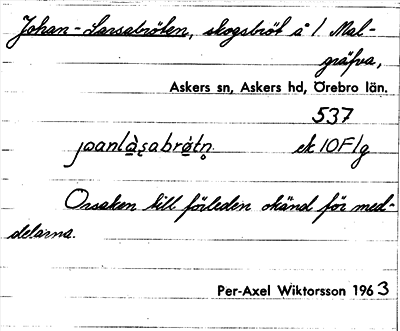 Johan-Larsabröten, skogsbröt å 1 Mal-
gräfva,
Askers sn, Askers hd, Örebro län.
537
ek 10F1g
Orsaken till förleden okänd för med-
delarna.
Per-Axel Wiktorsson 1963